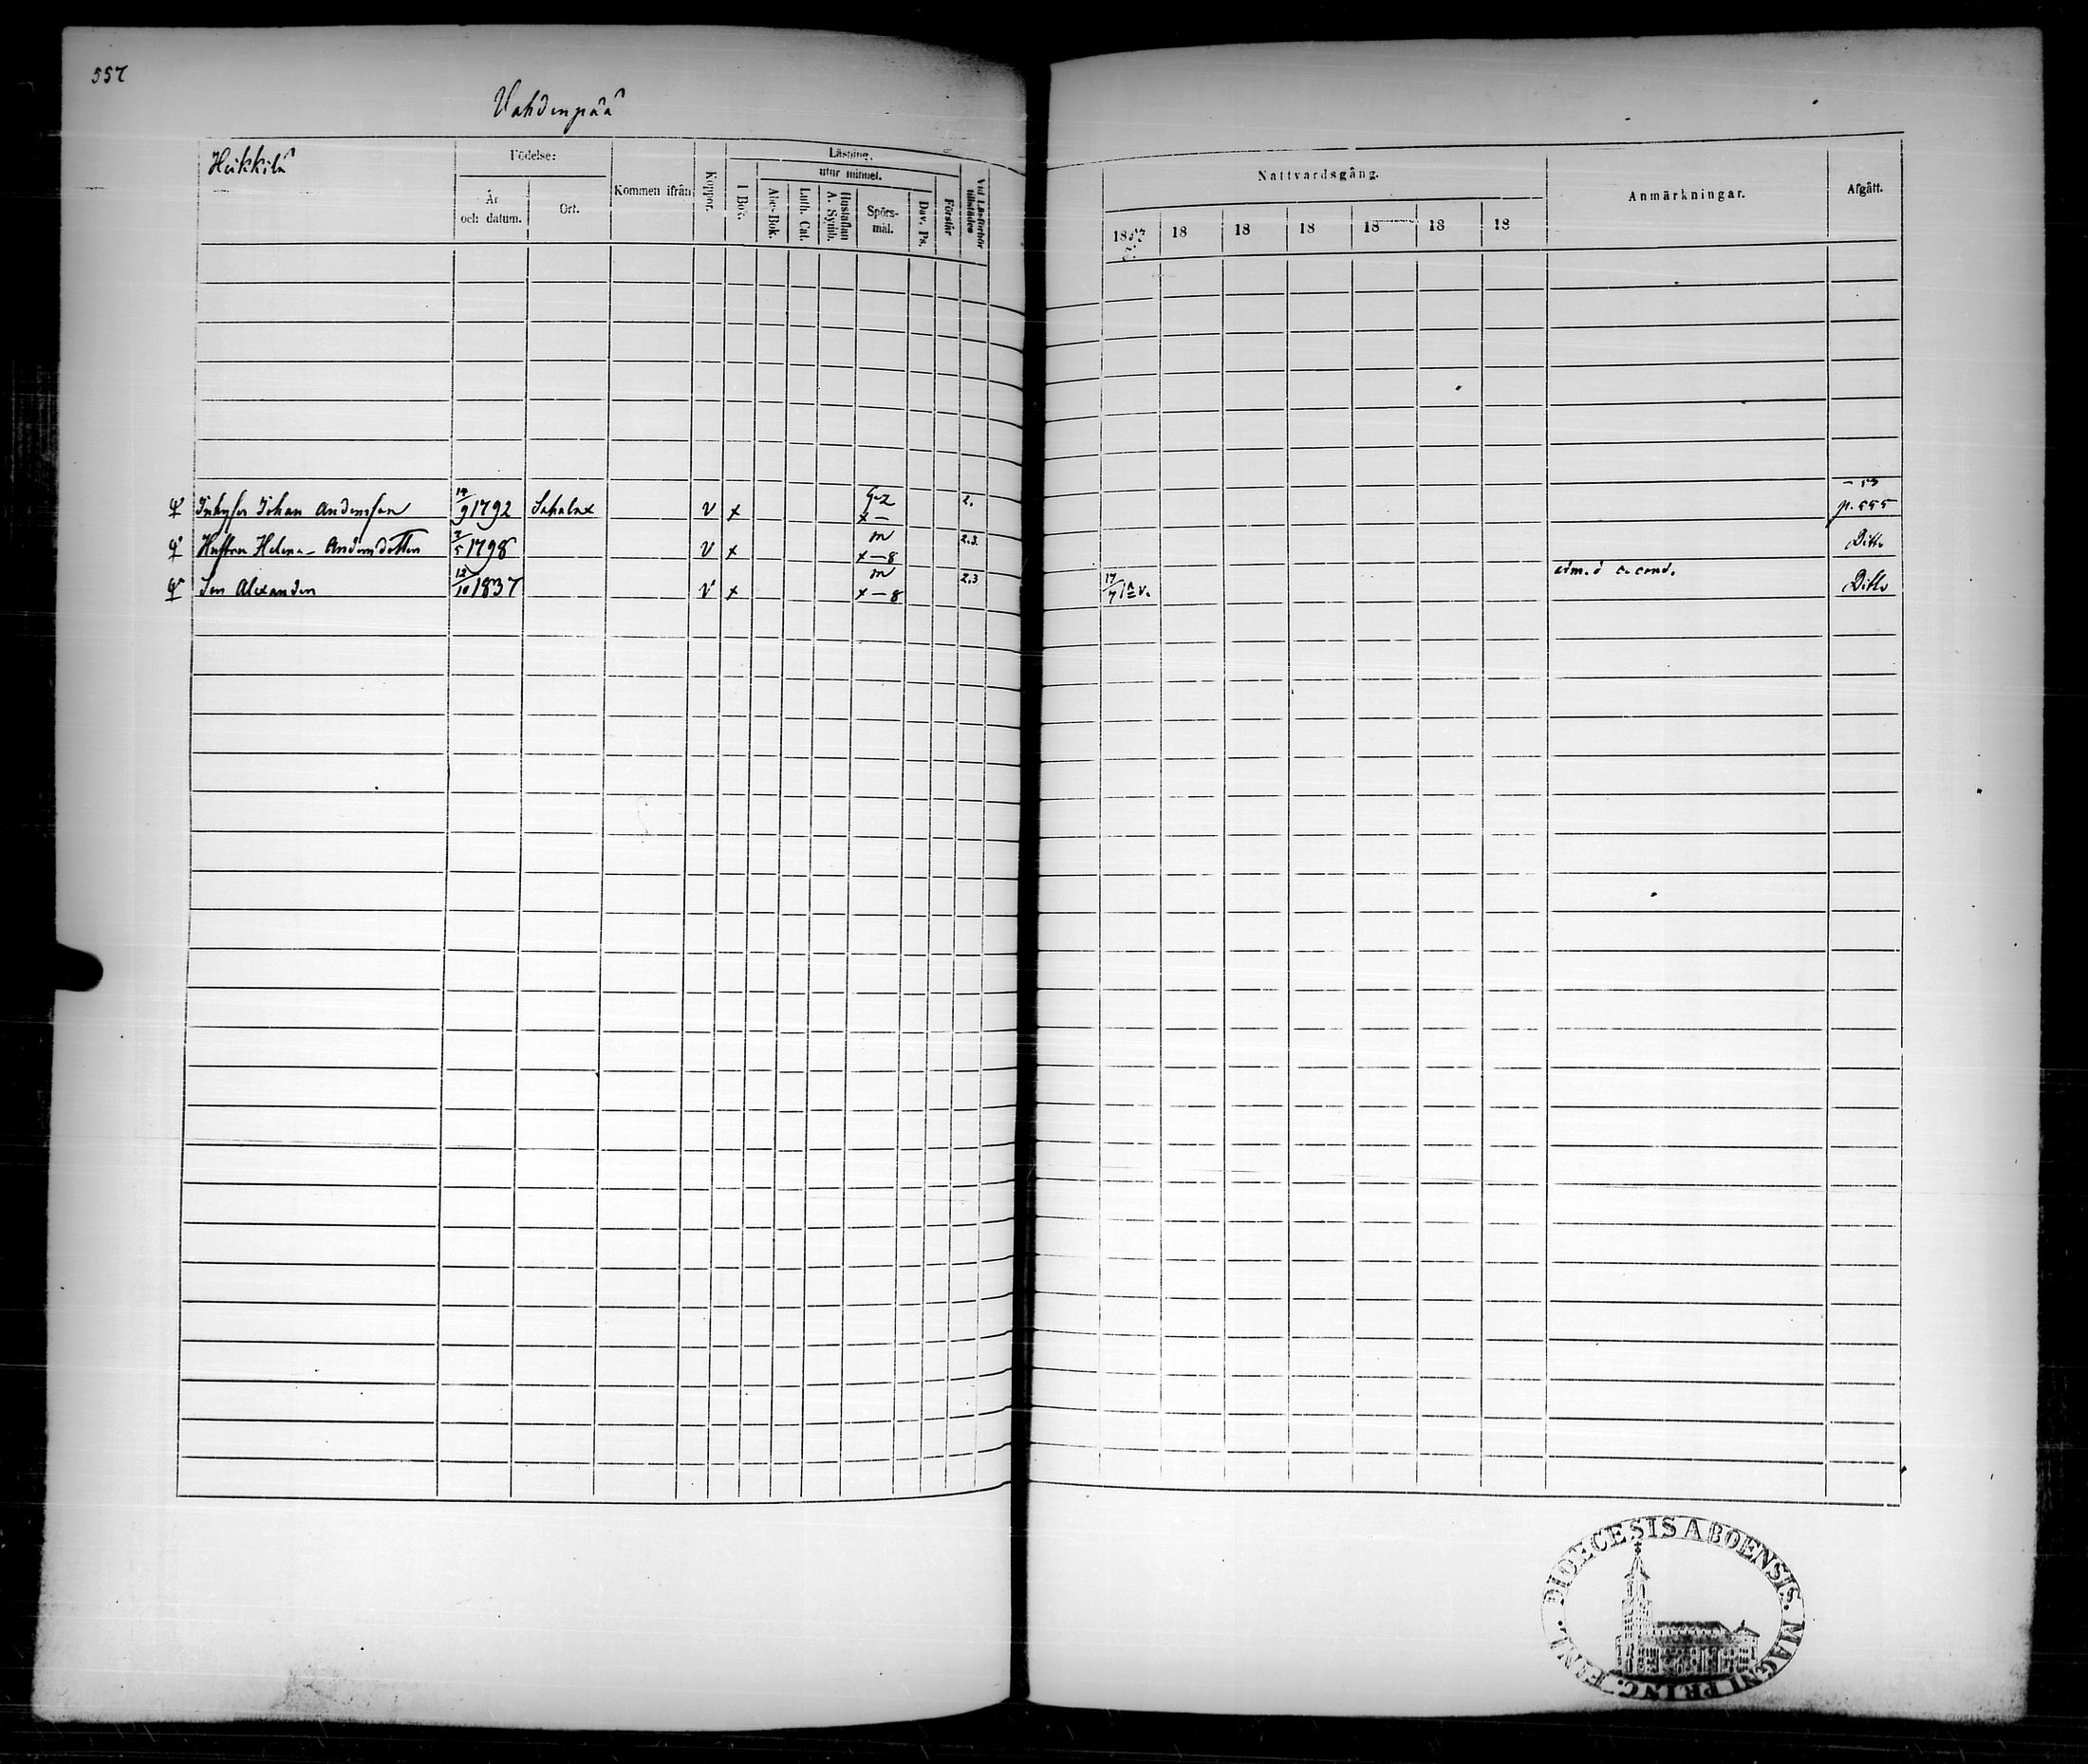 557
Vahdenpää
Heikkilä
Födelse:
År och datum.
Ort.
Kommen ifrån
Koppor.
Läsning.
I Bok.
utur minnet.
Abc-Bok.
Luth. Cat.
Hustaflan A. Symb.
Spörsmål.
Dav. Ps.
Förstår
Vid Läsförhör tillstädes
Nattvardsgång.
1857 18 18 18 18 18 18
Anmärkningar.
Afgått.
Johan Andersson 19/9 1792 Sahalax v x x— 2. p. 555
Hustru Helena Andersdotter 2/5 1798 v x m x—8 2.3. Ditto
Son Alexander 12/10 1837 v x m x—8 2.3 17/7 adm. o c. cond. Ditto
DIOECESIS ABOENSIS. MAGNI PRINC. FINL.